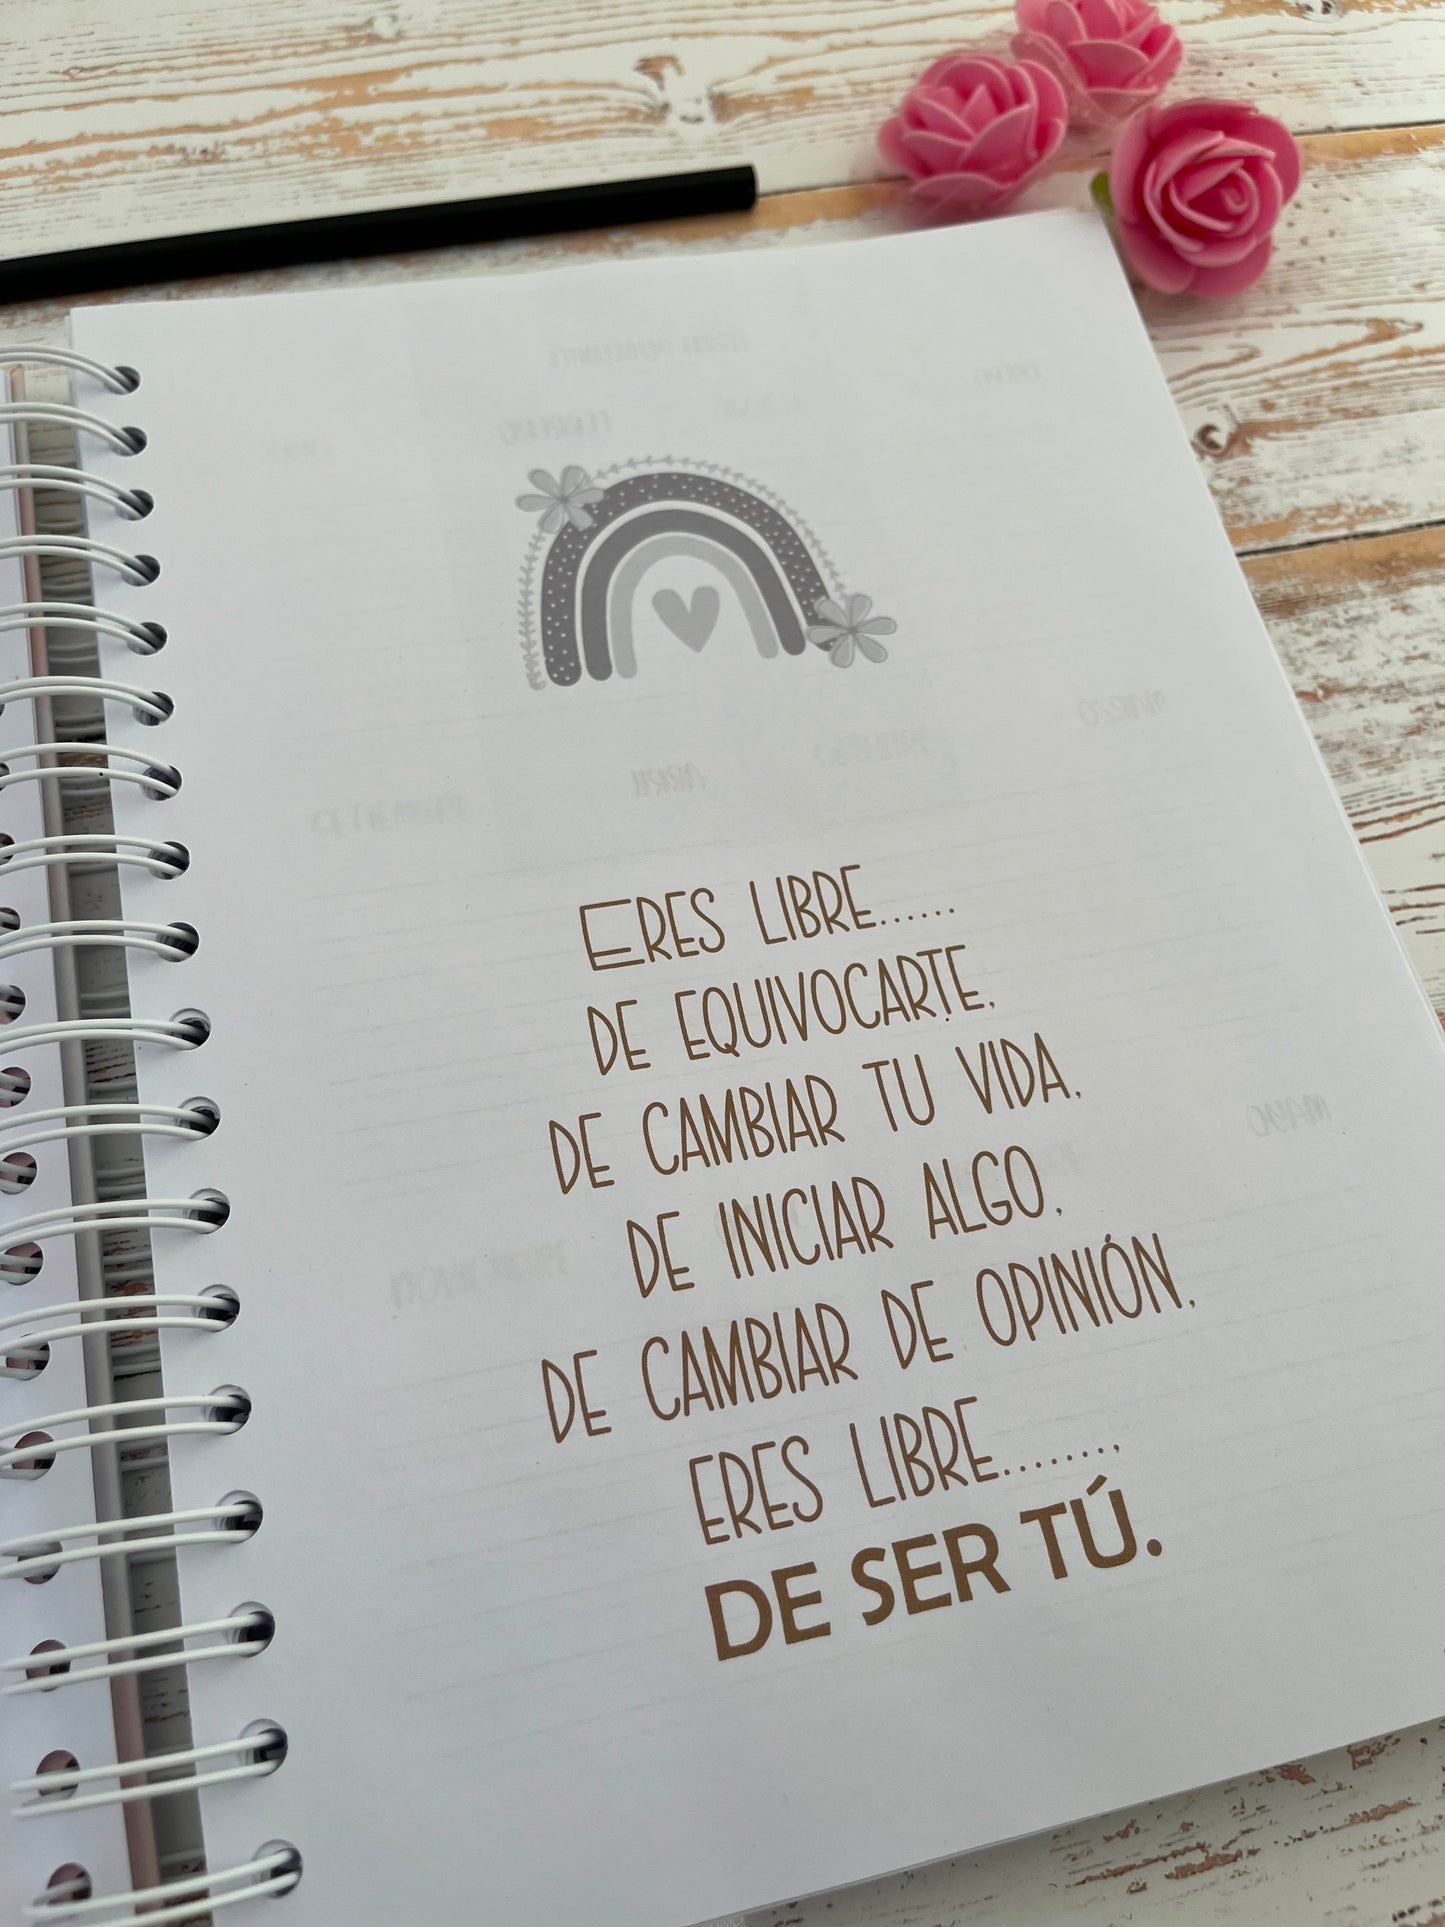 Eres libre......
de equivocarte,
de cambiar tu vida,
de iniciar algo,
de cambiar de opinión,
eres libre........,
DE SER TÚ.
FEBRERO
MARZO
ABRIL
MAYO